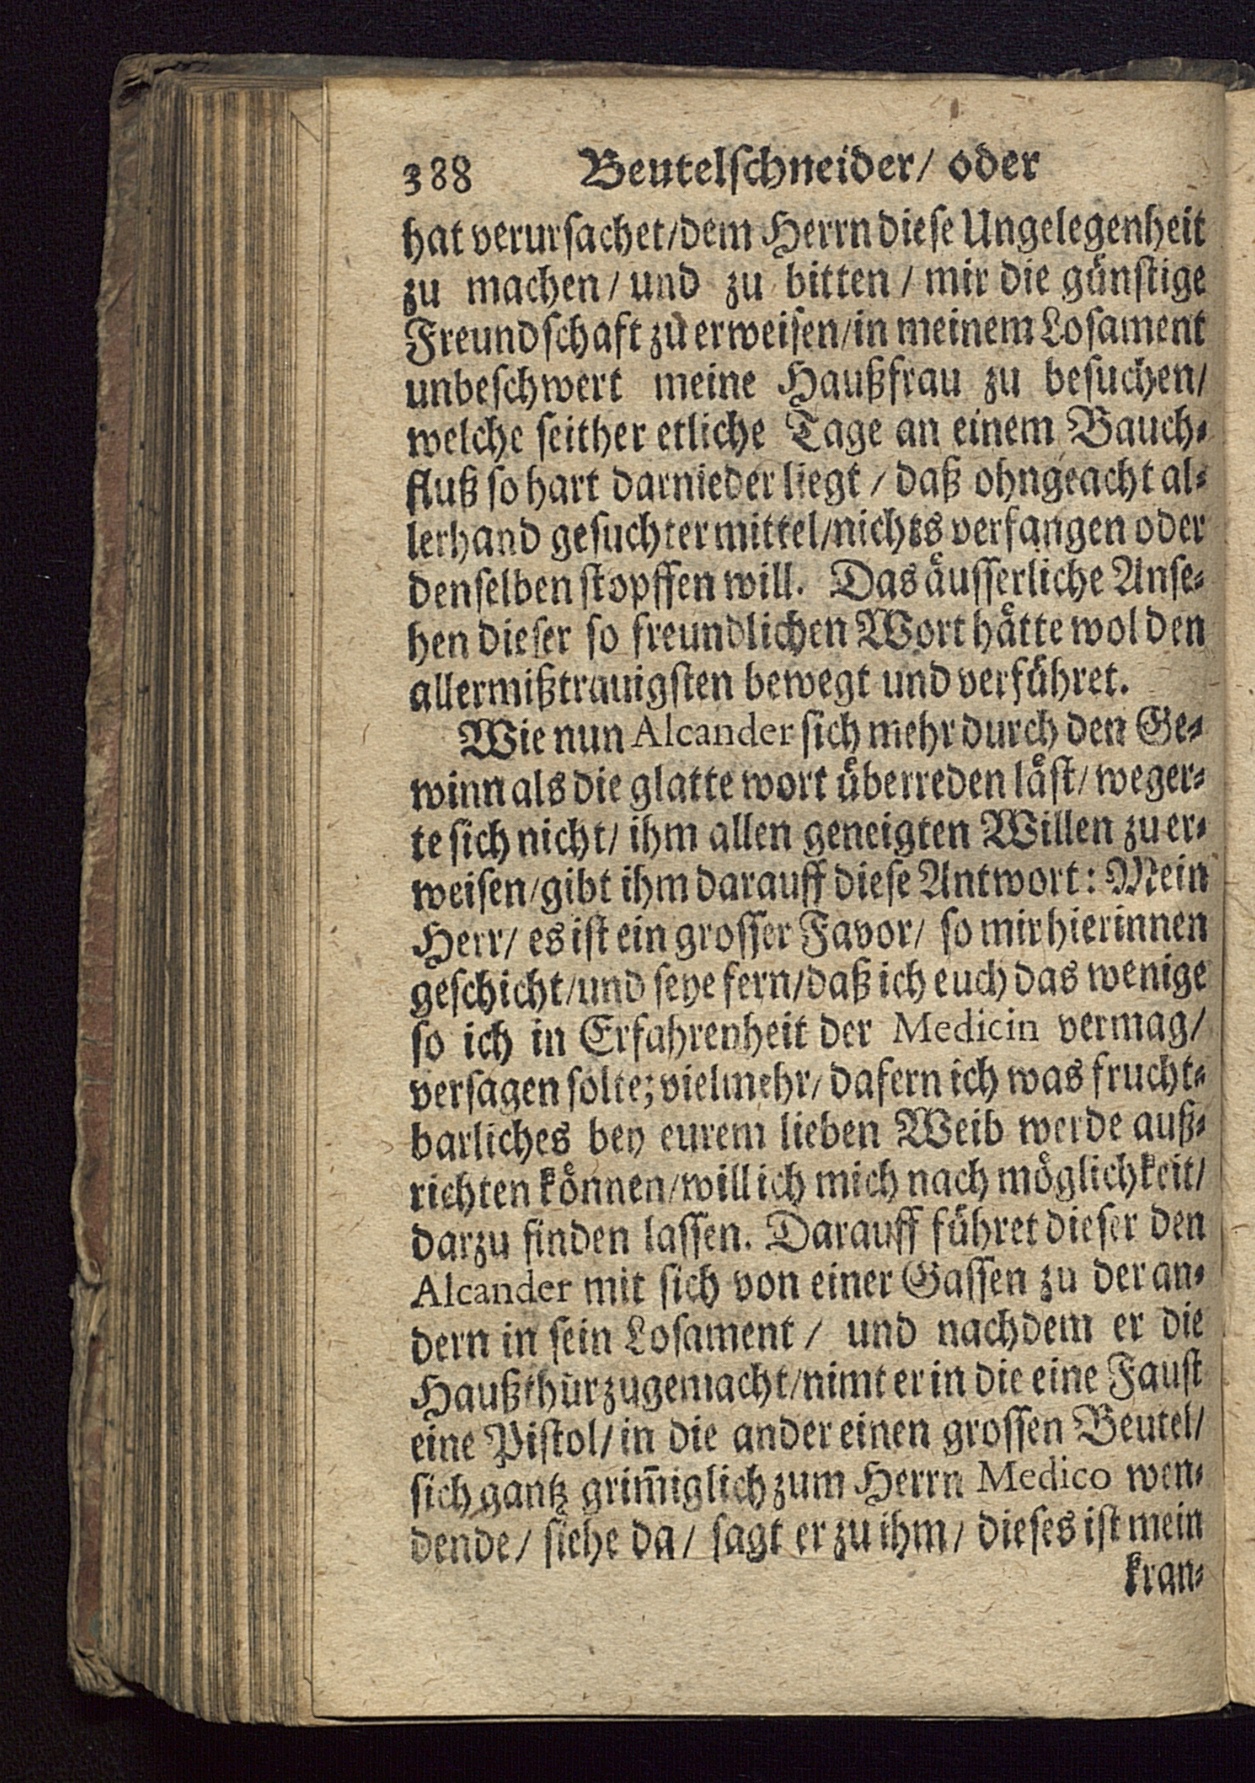 388 Beutelschneider/ oder
hat verursachet/dem Herrn diese Ungelegenheit
zu machen/ und zu bitten/ mir die günstige
Freundschaft zu erweisen/in meinem Losament
unbeschwert meine Haußfrau zu besuchen/
welche seither etliche Tage an einem Bauch-
fluß so hart darnieder liegt/ daß ohngeacht al-
lerhand gesuchter mittel/nichts verfangen oder
denselben stopffen will. Das äusserliche Anse-
hen dieser so freundlichen Wort hätte wol den
allermißtrauigsten bewegt und verführet.
Wie nun Alcander sich mehr durch den Ge-
winn als die glatte wort überreden läst/ weger-
te sich nicht/ ihm allen geneigten Willen zu er-
weisen/gibt ihm darauff diese Antwort: Mein
Herr/ es ist ein grosser Favor/ so mir hierinnen
geschicht/und seye fern/daß ich euch das wenige
so ich in Erfahrenheit der Medicin vermag/
versagen solte; vielmehr/ dafern ich was frucht-
barliches bey eurem lieben Weib werde auß-
richten können/will ich mich nach möglichkeit/
darzu finden lassen. Darauff führet dieser den
Alcander mit sich von einer Gassen zu der an-
dern in sein Losament/ und nachdem er die
Haußthür zugemacht/nimt er in die eine Faust
eine Pistol/ in die ander einen grossen Beutel/
sich gantz grim̃iglich zum Herrn Medico wen-
dende/ siehe da/ sagt er zu ihm/ dieses ist mein
kran-